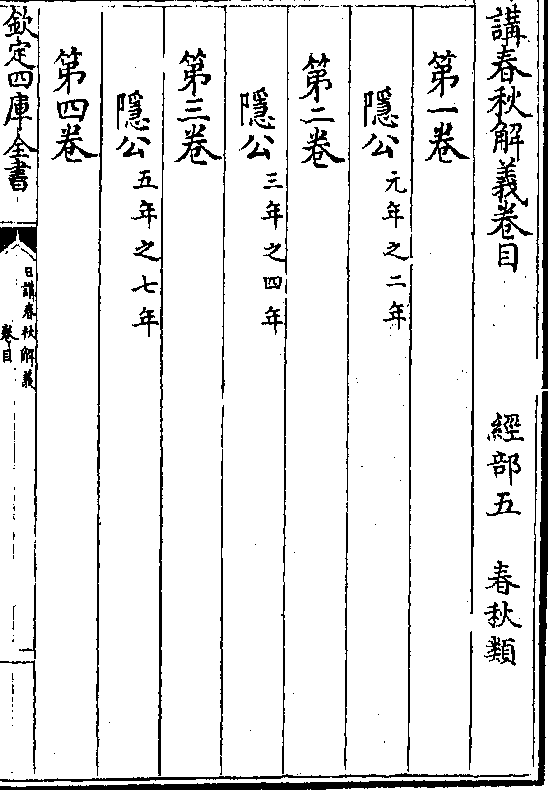 講春秋解義卷目　經部五　春秋類
第一卷
隱公元年之二年
第二卷
隱公三年之四年
第三卷
隱公五年之七年
第四卷
欽定四庫全書
日講春秋解義
卷目
一